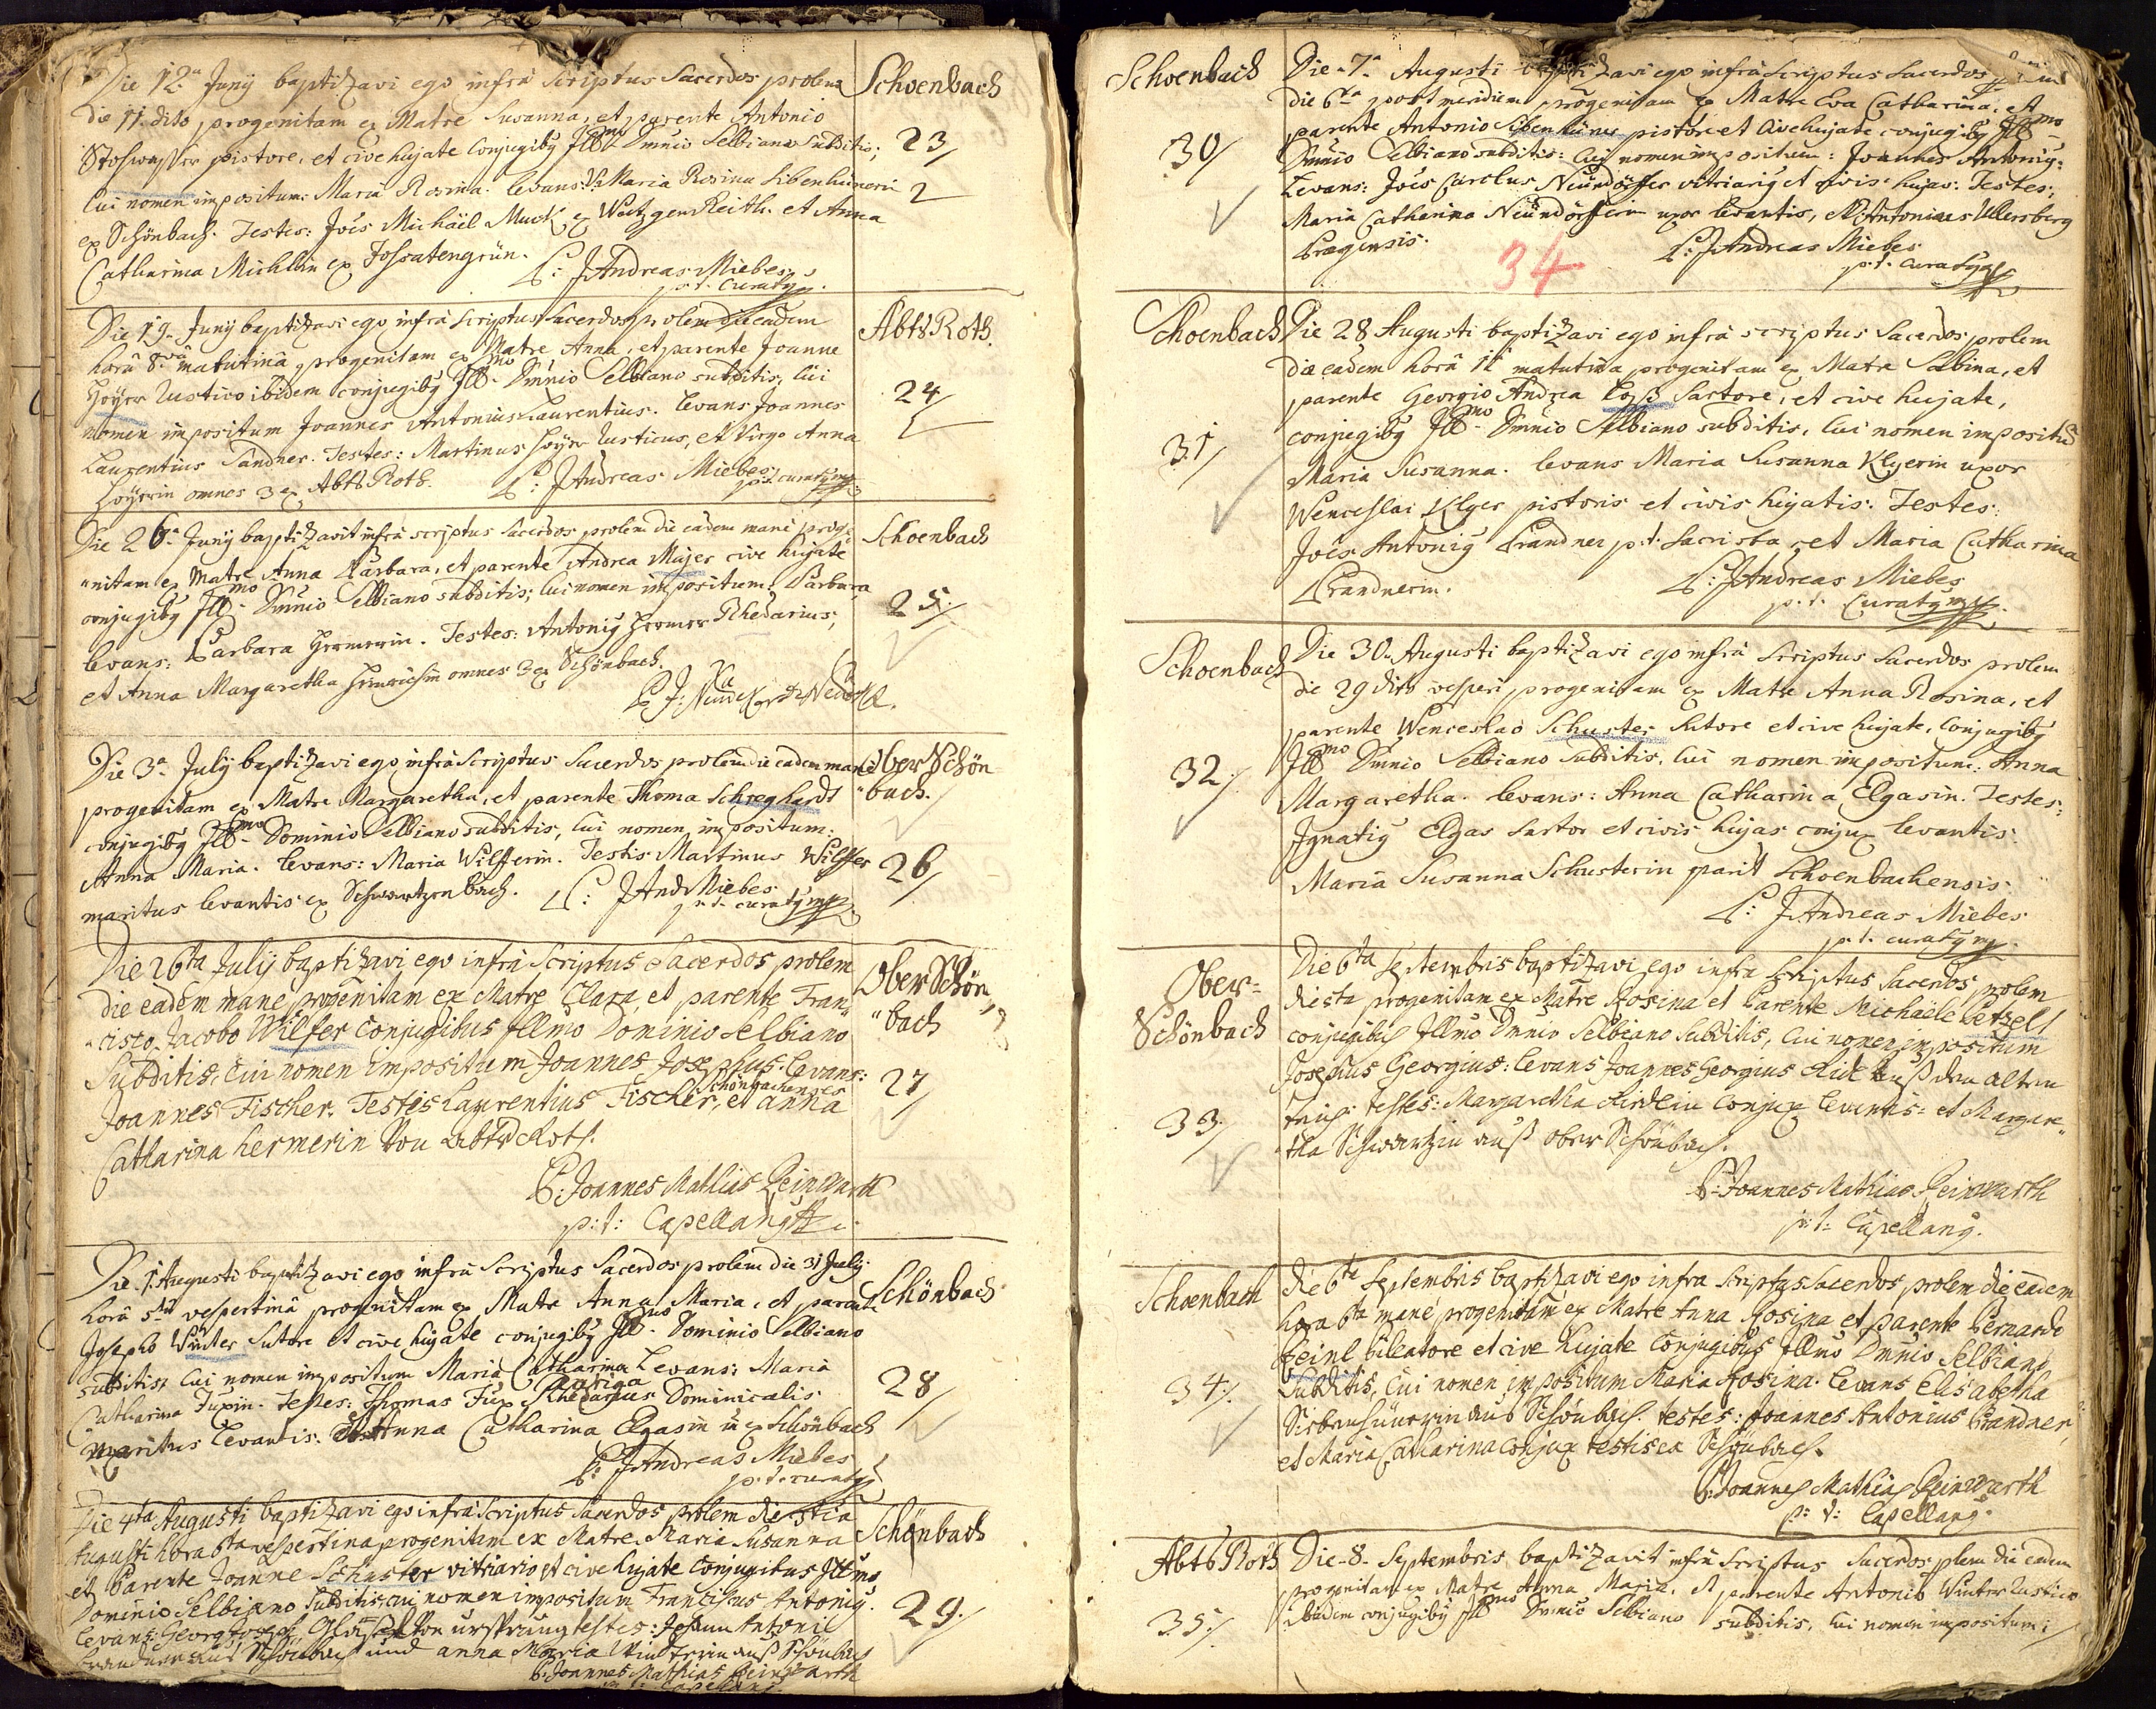 Die 12.a Junÿ baptizavi ego infrà scriptus Sacerdos prolem
Schoenbach
die 11. dito progenitam ex Matre Susanna, et parente Antonio
Stoswasser pistore, et cive hujate Conjugibg Illmo Dmnio Selbiano Subditis;
23/
Cui nomen impositum: Maria Rosina: levans: V: Maria Rosina Sibenhünerin
2
ex Schönbach. Testes: Joēs Michäel Muck ex WatzgenReith. et Anna
Catharina Michlin ex Fossatengrün.
P: JAndreas Miebes
p.t. Curatg
Die 19. Junÿ baptizavi ego infrà scriptus Sacerdos prolem die eadem
AbtsRoth.
horâ 8.vâ matutinâ progenitam ex Matre Anna, et parente Joanne
Hoÿer Rustico ibidem conjugibg Illmo Dmnio Selbiano subditis, Cui
24/
nomen impositum Joannes Antonius Laurentius. levans Joannes
Laurentius Sandner. Testes: Martinus Hoÿer Rusticus, et Virgo Anna
Hoÿerin omnes 3 ex AbtsRoth.
P: JAndreas Miebes
p.t. curatg mp
Die 26.a Junÿ baptizavit infrà scriptus Sacerdos prolem die eadem manè proge
Schoenbach
nitam ex Matre Anna Barbara, et parente Andrea Majer cive hujate
conjugibg Illmo Dmnio Selbiano subditis; cui nomen impositum: Barbara
25./
levans: Barbara Hermerin. Testes: Antonig Hermer Rhedarius,
et Anna Margaretha Heinrichin omnes 3 ex Schönbach.
Die 3.a Julÿ baptizavi ego infrà Scriptus Sacerdos prolem die eadem mane
Ober Schön
bach.
progenitam ex Matre Margaretha, et parente Thoma Schreghardt
conjugibg Illmo Dominio Selbiano subditis, Cui nomen impositum:
Anna Maria. levans: Maria Wilfferin. Testis Martinus Wilffer
26/
maritus levantis ex Schwartzenbach.
P: JAnd Miebes
p.t. curatg mp
Die 26ta Julÿ baptizavi ego infrà Scriptus Sacerdos prolem
Ober Schön
die eadem mane progenitam ex Matre Clara, et parente Fran
bach
cisco Jacobo Wilfer Conjugibus Illmo Dominio Selbiano
Subditis, Cui nomen impositum Joannes Josephus. levans:
27/
Schönbachenses
Joannes Fischer. Testes Laurentius Fischer, et anna
Catharina hermerin Von AbtsRoth.
P: Joannes Mathias Reinwarth
p: t: Capellang
Die. 1. Augusti baptizavi ego infrà Scriptus Sacerdos prolem die 31 July
Schönbach
horâ 5.tâ vespertinâ progenitam ex Matre Anna Maria, et parente
Josepho Winter Sutore et cive hujate conjugibg Illmo Dominio Selbiano
subditis, Cui nomen impositum Maria Catharina levans: Maria
28/
auriga
Catharina Fuxin. Testes: Thomas Fux Rhedarius Dominicalis
maritus levantis. et Anna Catharina Elgasin ex Schönbach
P: JAndreas Miebes
p.t. curatg
Die 4ta Augusti baptizavi ego infrà scriptus Sacerdos prolem die 3tia
Schönbach
Augusti hora 6ta vespertina progenitam ex Matre Maria Susanna
et Parente Joanne Schuster vitriario et cive hujate Conjugibus Illmo
Dominio Selbiano Subditis, cui nomen impositum Franciscus Antonig.
29./
levans: Georg Joseph Gläsel Von ursprung testes: Johann Antoni
brandner aus Schönbach und anna Maria Winterin auß Schönbach
P: Joannes Mathias Reinwarth
p: t: Capellang
Schoenbach
Die 7.a Augusti baptizavi ego infrà Scriptus Sacerdos
die 6ta postmeridiem progenitam ex Matre Eva Catharina, et
parente Antonio Sibenhüner pistore et Cive hujate conjugibg Illmo
30/
Dmnio Selbiano subditis: Cui nomen impositum: Joannes Antonig:
Levans: Joēs Carolus Neündörffer vitriarig et civis hujas: Testes:
Maria Catharina Neündörfferin uxor levantis, et Antonius Ullersberg
Pragensis.
34
P: JAndreas Miebes
p.t. curatg
Schoenbach
Die 28 Augusti baptizavi ego infrà scriptus Sacerdos prolem
die eadem horâ 11 matutina progenitam ex Matre Sabina, et
parente Georgio Andrea Loß Sartore, et cive hujate,
31/
conjugibg Illmo Dmnio Selbiano subditis, Cui nomen impositū
Maria Susanna. levans Maria Susanna Klgerin uxor
Wenceslai Klger pistoris et civis hujatis. Testes:
Joēs Antonig Prandner p.t. Sacrista, et Maria Catharina
Prandnerin.
P: JAndreas Miebes
p.t. Curatg mp
Schoenbach
Die 30. Augusti baptizavi ego infrà Scriptus Sacerdos prolem
die 29 dito vesperi progenitam ex Matre Anna Rosina, et
parente Wenceslao Schuster Sutore et cive hujate, Conjugibg
32./
Illmo Dmnio Selbiano subditis, Cui nomen impositum: Anna
Margaretha. levans: Anna Catharina Elgasin. Testes:
Ignatig Elgas Sartor et civis hujas conjux levantis
Maria Susanna Schusterin parit Schoenbachensis.
P: JAndreas Miebes
p.t. curatg mp
Ober=
Schönbach
Die 6ta Septembris baptizavi ego infra Scriptus Sacerdos prolem
die 5ta progenitam ex Matre Rosina et Parente Michäele Petzelt
conjugibus Illmo Dmnio Selbiano Subditis, Cui nomen impositum
Josephus Georgius: levans Joannes Georgius auß dem alten
33./
testes: Margaretha Conjux levantis: et Margare
tha Schwartzin auß ober Schönbach.
P: Joannes Mathias Reinwarth
p: t: Capellang.
Schoenbach
die 6ta Septembris baptizavi ego infra scriptus Sacerdos prolem die eadem
hora 6ta mane progenitam ex Matre Anna Rosina et parente Bernardo
Heinl pileatore et cive hujate Conjugibus Illmo Dmnio Selbiano
34./
Subditis, Cui nomen impositum Maria Rosina. levans Elisabetha
Siebenhünerin aus Schönbach. testes: Joannes Antonius Brandner,
et Maria Catharina Conjux testis ex Schönbach.
P: Joannes Mathias Reinwarth
p: t: Capellang.
Abts Roth
Die 8. Septembris baptizavit infrà Scriptus Sacerdos plem die eadem
progenitam ex Matre Anna Maria, et parente Antonio Winter Rustico
35./
ibidem conjugibg Illmo Dmnio Selbiano subditis, Cui nomen impositum: